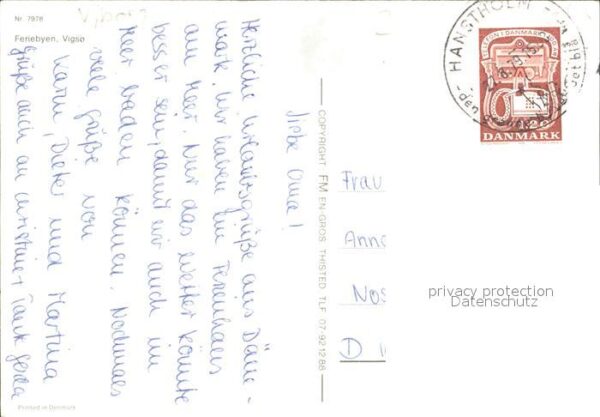 Nr. 7978
Feriebyen, Vigsø
Liebe Oma!
Herzliche Urlaubsgrüße aus Däne-
mark. Wir haben ein Ferienhaus
am Meer. Nur das Wetter könnte
besser sein, damit wir auch im
Meer baden können. Nochmals
viele Grüße von
Karin, Dieter und Martina
Grüße auch an Tante Gerda
COPYRIGHT FM EN-GROS THISTED TLF 07-921288
HANSTHOLM
DANMARK
Frau
Anna
D
privacy protection
Datenschutz
Printed in Denmark